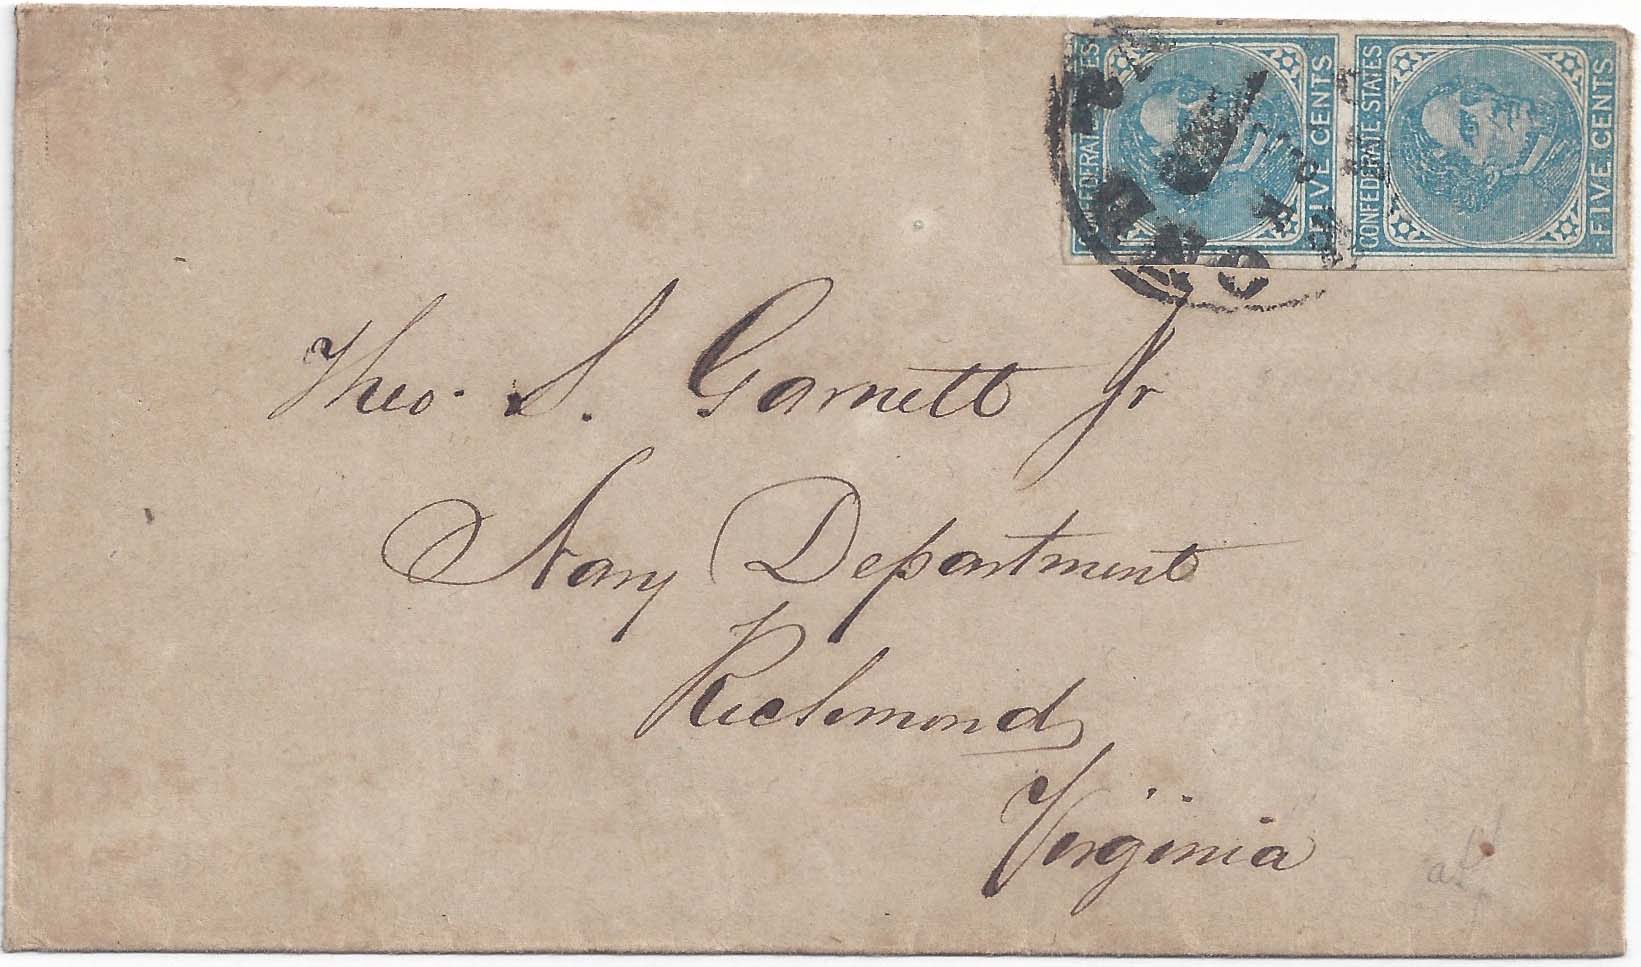 CONFEDERATE STATES
FIVE CENTS
CONFEDERATE STATES
FIVE CENTS
Theo. S. Garnett Jr
Navy Department
Richmond
Virginia